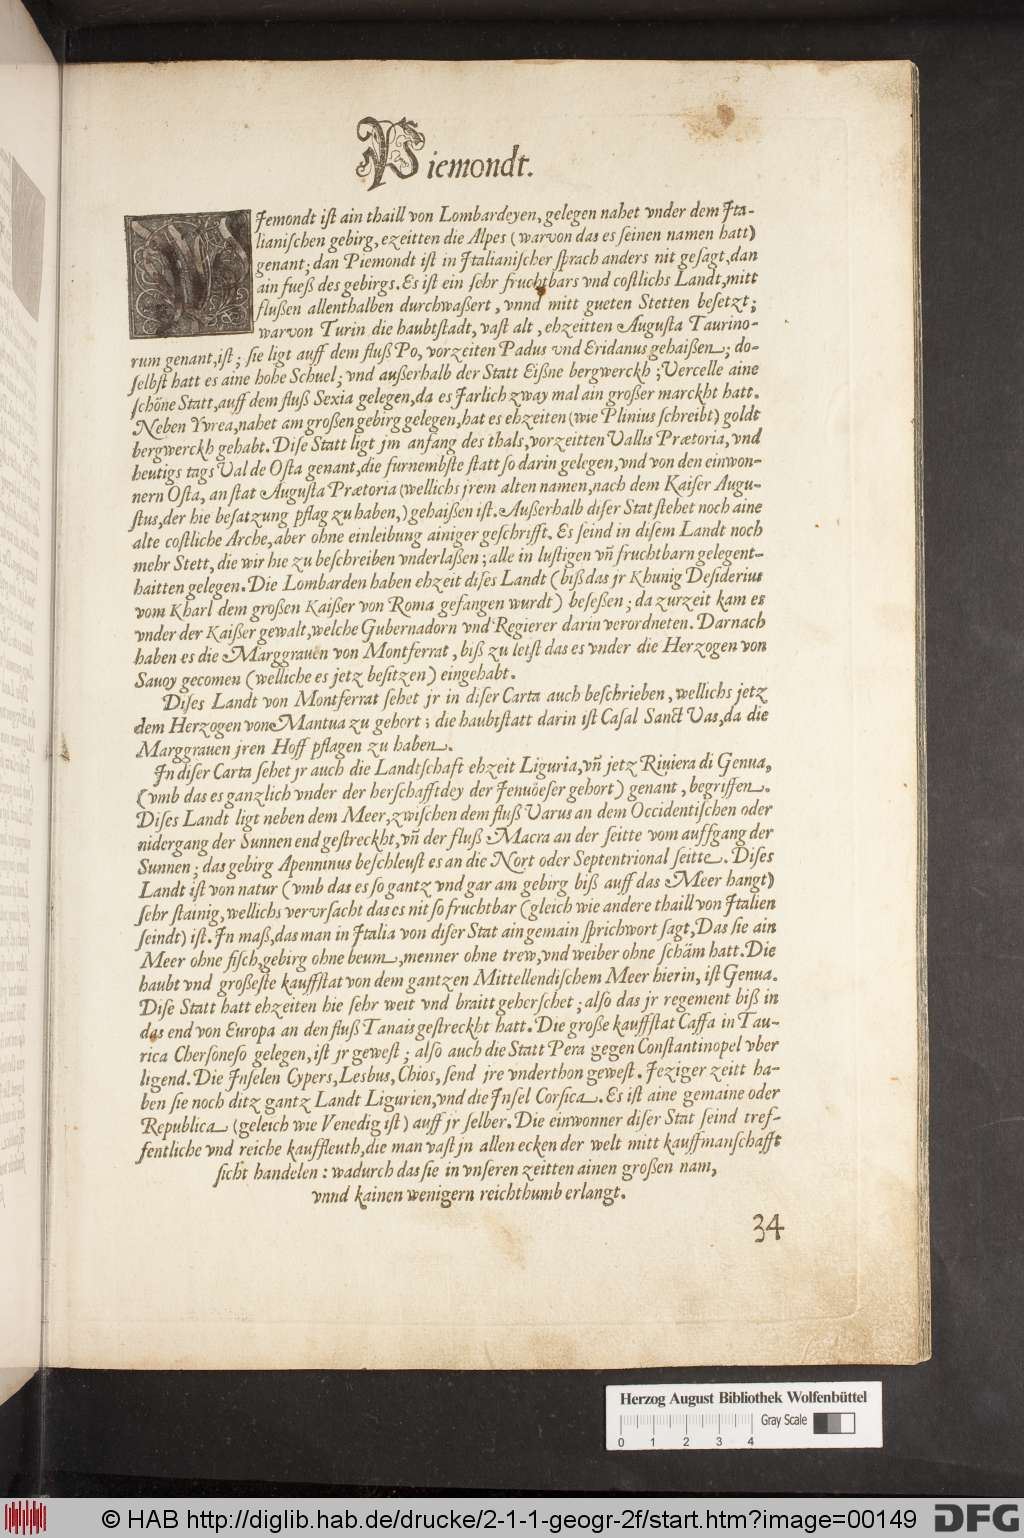 Piemondt.
Jemondt iſt ain thaill von Lombardeyen, gelegen nahet vnder dem Jta-
lianiſchen gebirg, ezeitten die Alpes (warvon das es ſeinen namen hatt)
genant; dan Piemondt iſt in Jtalianiſcher ſprach anders nit geſagt, dan
ain fueß des gebirgs. Es iſt ein ſehr fruchtbars vnd coſtlichs Landt, mitt
flußen allenthalben durchwaßert, vnnd mitt gueten Stetten beſetzt;
warvon Turin die haubtſtadt, vaſt alt, ehzeitten Auguſta Taurino-
rum genant, iſt; ſie ligt auff dem fluß Po, vorzeiten Padus vnd Eridanus gehaißen; do-
ſelbſt hatt es aine hohe Schuel; vnd außerhalb der Statt Eißne bergwerckh; Vercelle aine
ſchöne Statt, auff dem fluß Sexia gelegen, da es Jarlich zway mal ain großer marckht hatt.
Neben Yvrea, nahet am großen gebirg gelegen, hat es ehzeiten (wie Plinius ſchreibt) goldt
bergwerckh gehabt. Diſe Statt ligt jm anfang des thals, vorzeitten Vallis Prætoria, vnd
heutigs tags Val de Oſta genant, die furnembſte ſtatt ſo darin gelegen, vnd von den einwon-
nern Oſta, an ſtat Auguſta Prætoria (wellichs jrem alten namen, nach dem Kaiſer Augu-
ſtus, der hie beſatzung pflag zu haben,) gehaißen iſt. Außerhalb diſer Stat ſtehet noch aine
alte coſtliche Arche, aber ohne einleibung ainiger geſchrifft. Es ſeind in diſem Landt noch
mehr Stett, die wir hie zu beſchreiben vnderlaßen; alle in luſtigen vñ fruchtbarn gelegent-
haitten gelegen. Die Lombarden haben ehzeit diſes Landt (biß das jr Khunig Deſiderius
vom Kharl dem großen Kaißer von Roma gefangen wurdt) beſeßen; da zurzeit kam es
vnder der Kaißer gewalt, welche Gubernadorn vnd Regierer darin verordneten. Darnach
haben es die Marggrauen von Montferrat, biß zu letſt das es vnder die Herzogen von
Sauoy gecomen (welliche es jetz beſitzen) eingehabt.
Diſes Landt von Montferrat ſehet jr in diſer Carta auch beſchrieben, wellichs jetz
dem Herzogen von Mantua zu gehort; die haubtſtatt darin iſt Caſal Sanct Vas, da die
Marggrauen jren Hoff pflagen zu haben.
In diſer Carta ſehet jr auch die Landtſchaft ehzeit Liguria, vñ jetz Riuiera di Genua,
(vmb das es ganzlich vnder der herſchafftdey der Jenuöeſer gehort) genant, begriffen.
Diſes Landt ligt neben dem Meer, zwiſchen dem fluß Varus an dem Occidentiſchen oder
nidergang der Sunnen end geſtreckht, vñ der fluß Macra an der ſeitte vom auffgang der
Sunnen; das gebirg Apenninus beſchleuſt es an die Nort oder Septentrional ſeitte. Diſes
Landt iſt von natur (vmb das es ſo gantz vnd gar am gebirg biß auff das Meer hangt)
ſehr ſtainig, wellichs verurſacht das es nit ſo fruchtbar (gleich wie andere thaill von Jtalien
ſeindt) iſt. Jn maß, das man in Jtalia von diſer Stat ain gemain ſprichwort ſagt, Das ſie ain
Meer ohne fiſch, gebirg ohne beum, menner ohne trew, vnd weiber ohne ſchäm hatt. Die
haubt vnd großeſte kauffſtat von dem gantzen Mittellendiſchem Meer hierin, iſt Genua.
Diſe Statt hatt ehzeiten hie ſehr weit vnd braitt geherſchet; alſo das jr regement biß in
das end von Europa an den fluß Tanais geſtreckht hatt. Die große kauffſtat Caffa in Tau-
rica Cherſoneſo gelegen, iſt jr geweſt; alſo auch die Statt Pera gegen Conſtantinopel vber
ligend. Die Jnſelen Cypers, Lesbus, Chios, ſend jre vnderthon geweſt. Jeziger zeitt ha-
ben ſie noch ditz gantz Landt Ligurien, vnd die Jnſel Corſica. Es iſt aine gemaine oder
Republica (geleich wie Venedig iſt) auff jr ſelber. Die einwonner diſer Stat ſeind tref-
fentliche vnd reiche kauffleuth, die man vaſt jn allen ecken der welt mitt kauffmanſchafft
ſicht handelen: wadurch das ſie in vnſeren zeitten ainen großen nam,
vnnd kainen wenigern reichthumb erlangt.
34
Herzog August Bibliothek Wolfenbüttel
Gray Scale
0 1 2 3 4
© HAB http://diglib.hab.de/drucke/2-1-1-geogr-2f/start.htm?image=00149
DFG